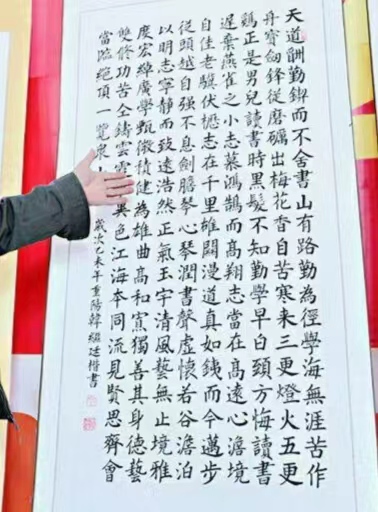 天道酬勤鍥而不舍書山有路勤為徑學海無涯苦作
丹寶劍鋒從磨礪出梅花香自苦寒来三更燈火五更
鷄正是男兒讀書時黑髮不知勤學早白頭方悔讀書
遲棄燕雀之小志慕鴻鵠而高翔志當在高遠心澹境
自佳老驥伏櫪志在千里雄關漫道真如銕而今邁步
從頭越自强不息劍膽琴心琴潤書聲虛懷若谷澹泊
以明志寧静而致遠浩然正氣玉宇清風藝無止境雅
度宏緯廣學甄微積健為雄曲高和寡獨善其身德藝
雙修功苦仝鑄雲異色江海夲同流見賢思齊會
當臨絕頂一覽衆
歲次乙未年重陽韓繼廷楷書